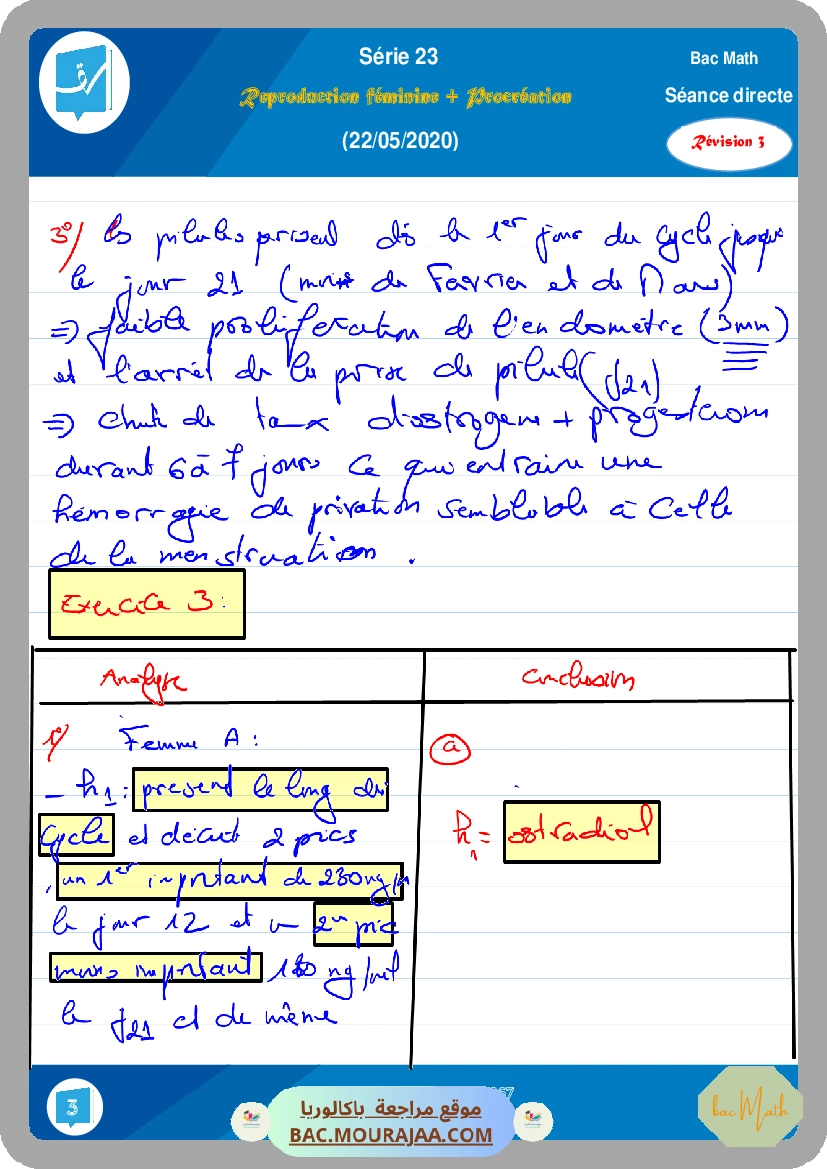 Série 23
Bac Math
Reproduction féminine + Procréation
Séance directe
(22/05/2020)
Révision 3
3°/ les pilules prisent dès le 1er jour du cycle jusque
le jour 21 (mois de Favrier et de Mars)
=> faible prolifération de l'endomètre (3mm)
et l'arrêt de la prise de pilule (j21)
=> chute de taux d'oestrogene + progesterone
durant 6 à 7 jours ce qui entraine une
hémorragie de privation semblable à celle
de la menstruation .
Exercice 3 :
Analyse
Conclusion
1°/ Femme A :
- h1 : present le long du
cycle et décrit 2 pics
, un 1er important de 230 ng/m
le jour 12 et un 2e pic
moins important ng/ml
le J21 et de même
a
h1 = oestradiol
3
موقع مراجعة باكالوريا
BAC.MOURAJAA.COM
bac Math